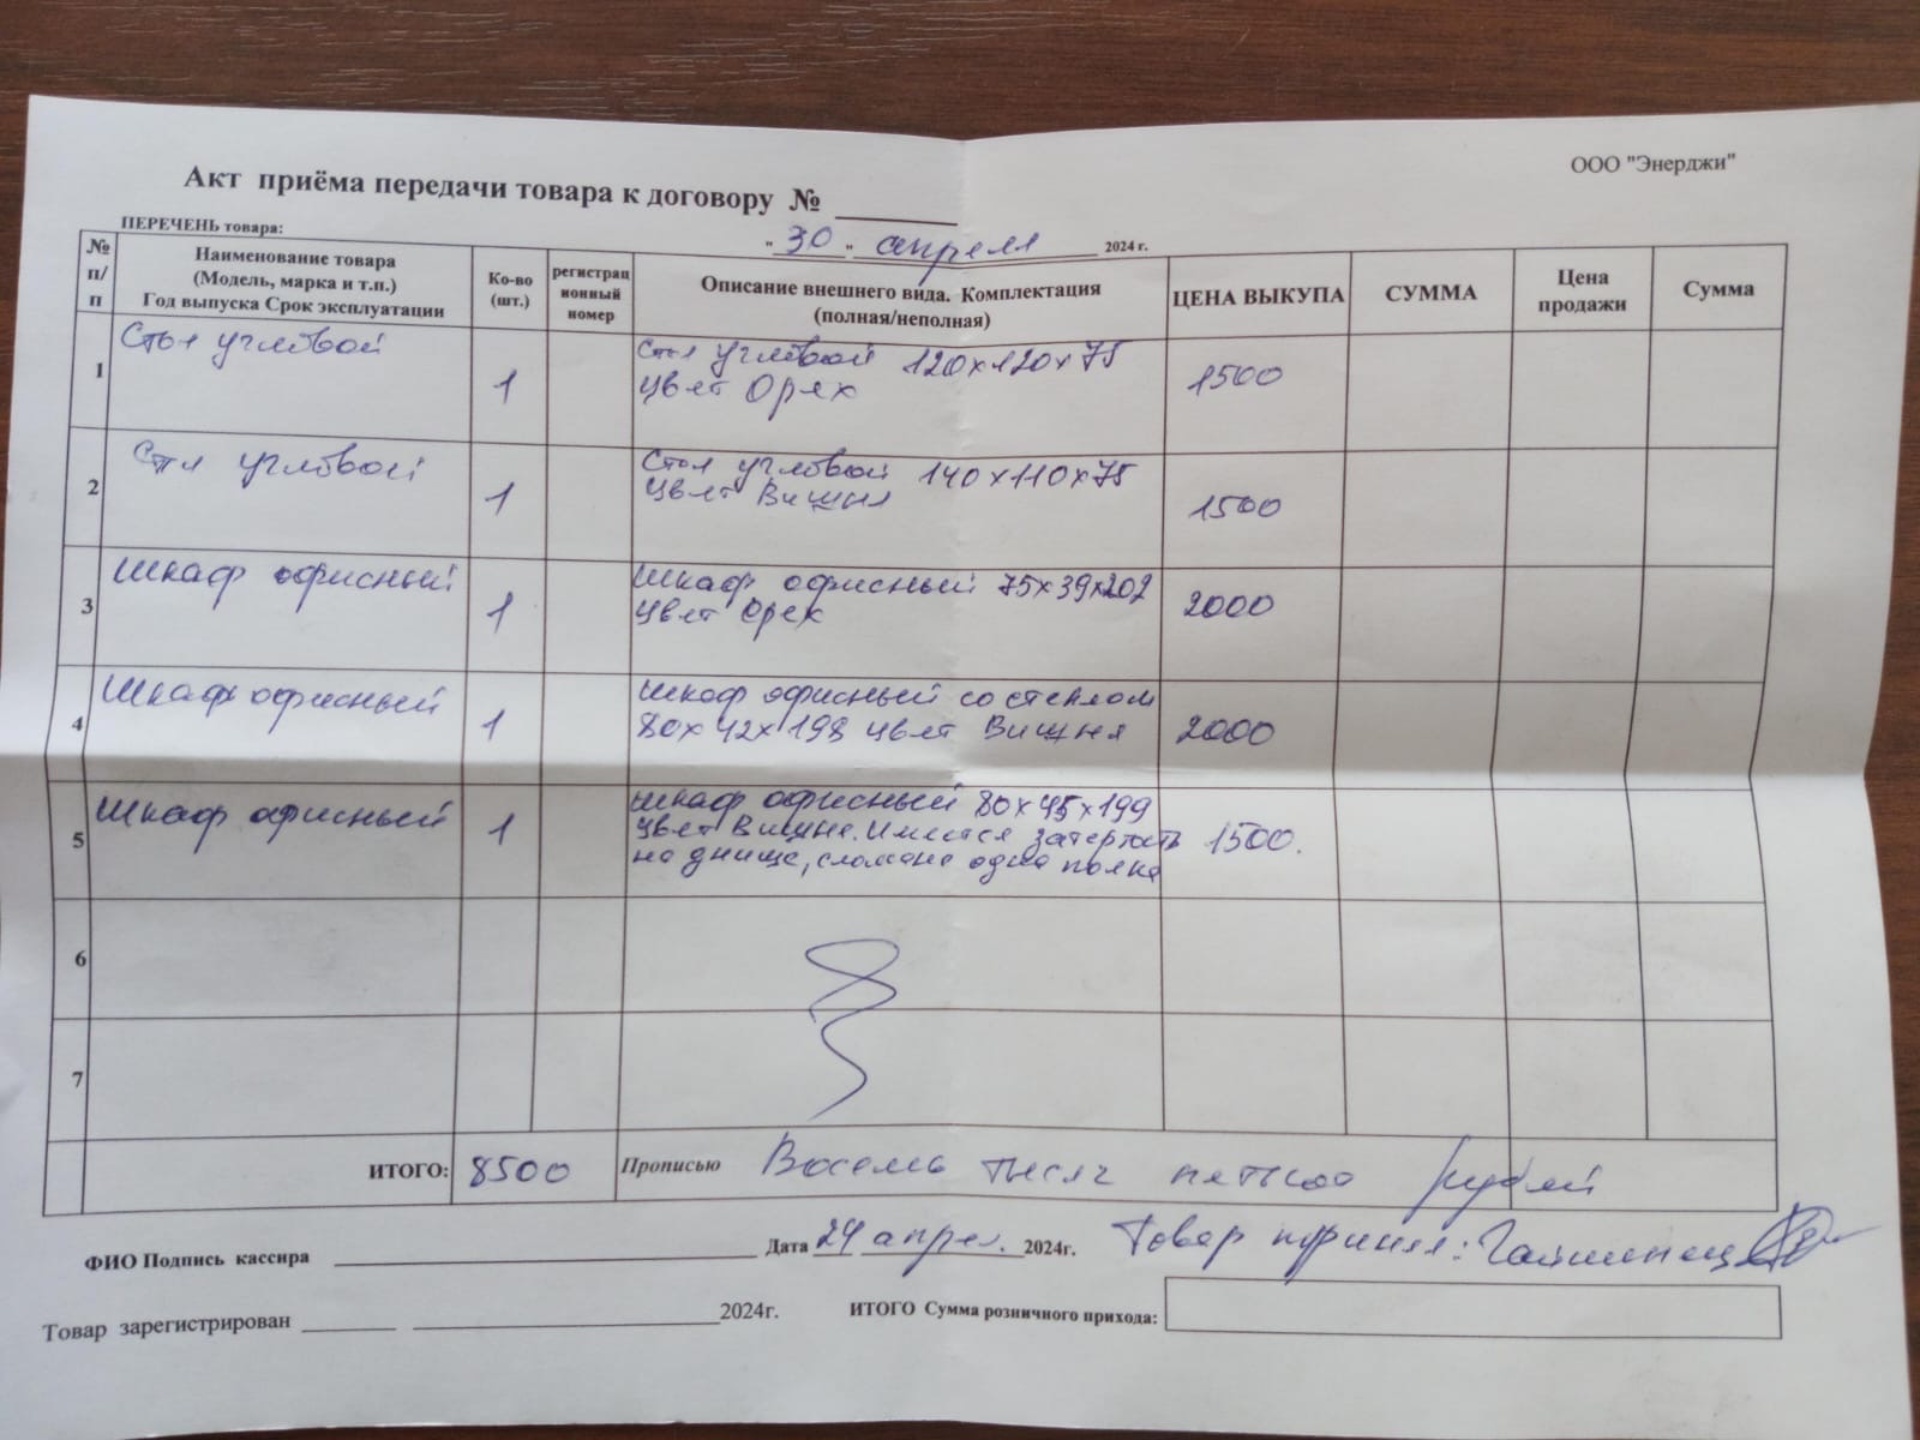 ООО "Энерджи"
Акт приёма передачи товара к договору № ______
ПЕРЕЧЕНЬ товара:
" 30 " апреля 2024 г.
№ п/п
Наименование товара
(Модель, марка и т.п.)
Год выпуска Срок эксплуатации
Ко-во
(шт.)
регистрац
ионный
номер
Описание внешнего вида. Комплектация
(полная/неполная)
ЦЕНА ВЫКУПА
СУММА
Цена
продажи
Сумма
1 Стол угловой 1 Стол угловой 120х120х75 1500
цвет Орех
2 Стол угловой 1 Стол угловой 140х110х75 1500
цвет Вишня
3 Шкаф офисный 1 Шкаф офисный 75х39х202 2000
цвет Орех
4 Шкаф офисный 1 Шкаф офисный со стеклом 2000
80х42х198 цвет Вишня
5 Шкаф офисный 1 Шкаф офисный 80х45х199 1500.
цвет Вишня. Имеется затертость
на днище, сломана одна полка
6
7
ИТОГО: 8500 Прописью Восемь тысяч пятьсот рублей
ФИО Подпись кассира ______ Дата 24 апрел. 2024г. Товар принял:
Товар зарегистрирован ______ ______ 2024г. ИТОГО Сумма розничного прихода: